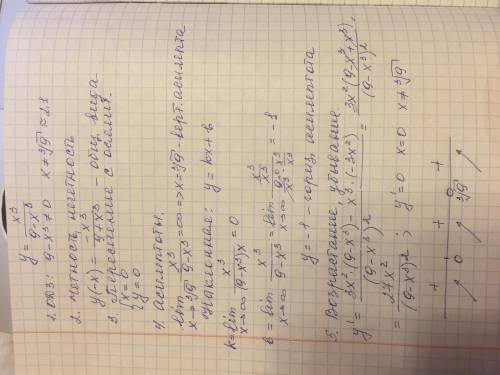 y = x³/(9-x³)
1. ОДЗ: 9-x³ ≠ 0   x ≠ ∛9 ≈ 2,1
2. Четность, нечетность
y(-x) = -x³/(9+x³) - общ. вида
3. Пересечение с осями.
{x=0
{y=0
4. Асимптоты.
lim x→∛9 x³/(9-x³) = ∞ => x=∛9 - верт. асимпта
Наклонная: y = kx+b
k = lim x→∞ x³/((9-x³)x) = 0
b = lim x→∞ x³/(9-x³) = lim x→∞ (x³/x³)/(9/x³ - x³/x³) = -1
y = -1 - гориз. асимптота
5. Возрастание, убывание.
y' = (3x²·(9-x³) - x³·(-3x²))/(9-x³)² = 3x²(9-x³+x³)/(9-x³)² =
= 27x²/(9-x³)² ; y'=0   x=0   x≠∛9
+ + +
0 ∛9